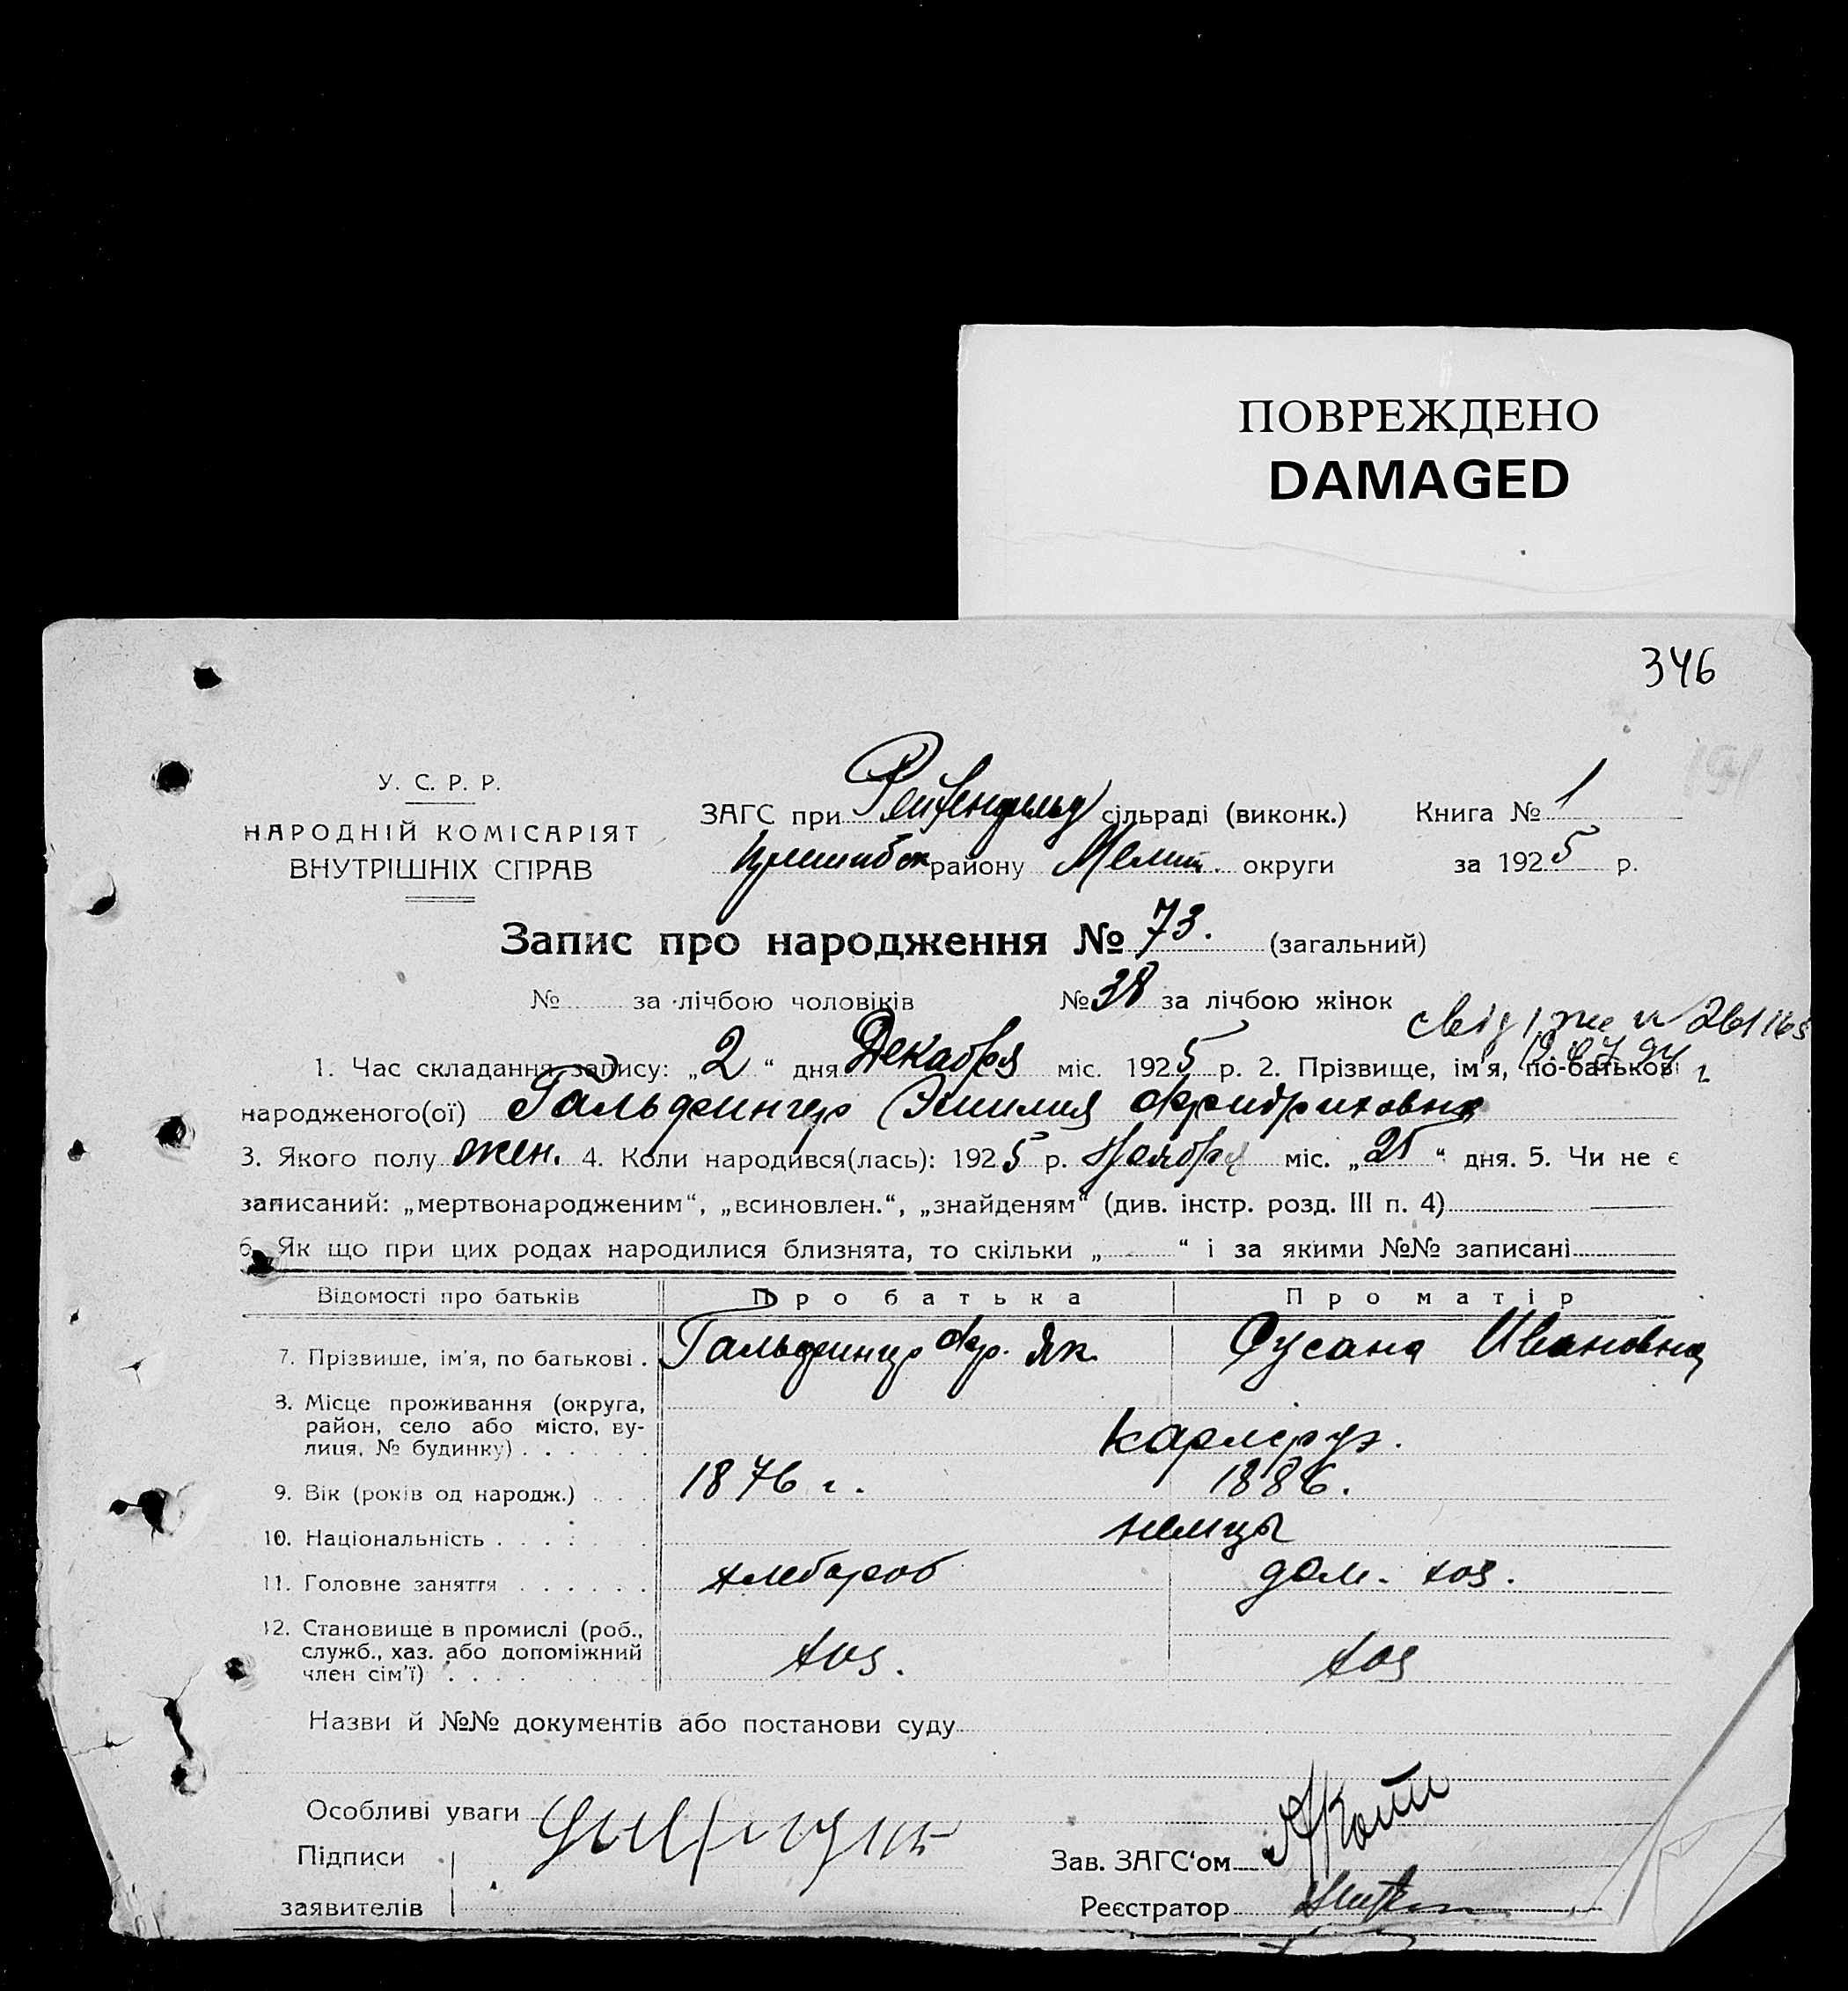 ПОВРЕЖДЕНО
DAMAGED
346
У. С. Р. Р.
НАРОДНІЙ КОМІСАРІЯТ
ВНУТРІШНІХ СПРАВ
ЗАГС при Рейхенфельд сільраді (виконк.) Книга № 1
району Мелит. округи за 1925 р.
Запис про народження № 73. (загальний)
№ за лічбою чоловіків № 38 за лічбою жінок
1. Час складання запису: „2“ дня Декабря міс. 1925 р. 2. Прізвище, ім'я, по-батькові
народженого(ої) Гальфингер Эмилия Фридриховна
3. Якого полу жен. 4. Коли народився(лась): 1925 р. Ноября міс. „25“ дня. 5. Чи не є
записаний: „мертвонародженим“, „всиновлен.“, „знайденям“ (див. інстр. розд. III п. 4)
6. Як що при цих родах народилися близнята, то скільки „ “ і за якими №№ записані
Відомості про батьків Про батька Про матір
7. Прізвище, ім'я, по батькові. Гальфингер Фр. Як. Сусана Ивановна
8. Місце проживання (округа,
район, село або місто, ву-
лиця, № будинку) Карлсруэ.
9. Вік (років од народж.) 1876 г. 1886.
10. Національність немцы
11. Головне заняття хлебороб дом. хоз.
12. Становище в промислі (роб.,
служб., хаз. або допоміжний
член сім'ї) хоз. хоз
Назви й №№ документів або постанови суду
Особливі уваги
Підписи
заявителів
Зав. ЗАГС'ом
Реєстратор